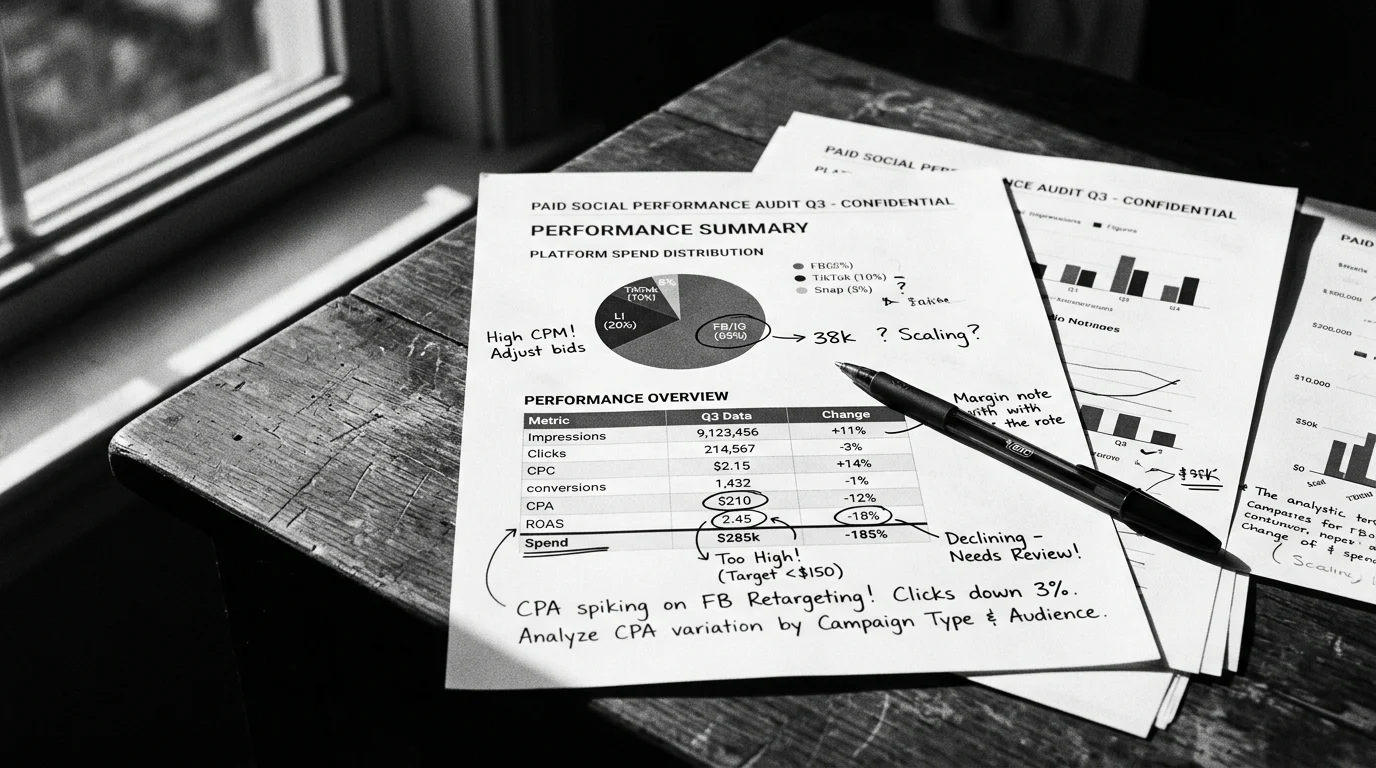 PAID SOCIAL PERFORMANCE AUDIT Q3 - CONFIDENTIAL
PERFORMANCE SUMMARY
PLATFORM SPEND DISTRIBUTION
TikTok (10%)
Snap (5%)
?
LI
(20%)
FB/IG
High CPM!
Adjust bids
38k ? Scaling?
PERFORMANCE OVERVIEW
Metric Q3 Data Change
Impressions 9,123,456 +11%
Clicks 214,567 -3%
CPC $2.15 +14%
conversions 1,432 -1%
CPA $210 -12%
ROAS 2.45 -18%
Spend $285k -185%
Margin note
with with
the rote
Too High!
(Target <$150)
Declining -
Needs Review!
CPA spiking on FB Retargeting! Clicks down 3%.
Analyze CPA variation by Campaign Type & Audience.
PAID SOCIAL
NCE AUDIT Q3 - CONFIDENTIAL
Q3
PAID
$200.000
$10.000
$50k
$0
The analystic
Campaigns for
Change of & spend